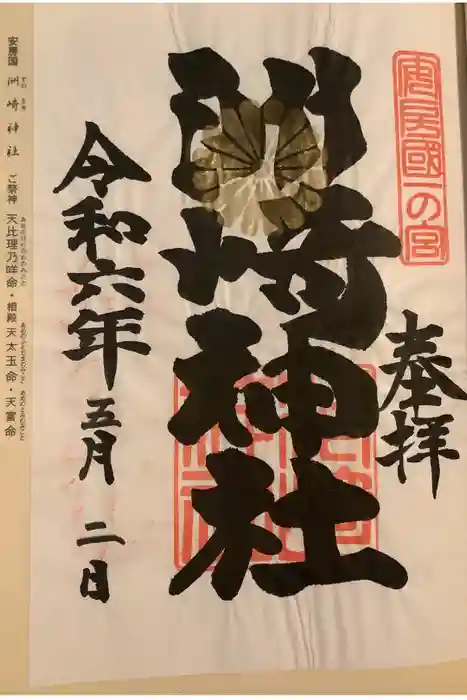 安房國一の宮
奉拝
洲崎神社
令和六年五月二日
安房国 洲崎神社 ご祭神 天比理乃咩命・相殿 天太玉命・天富命